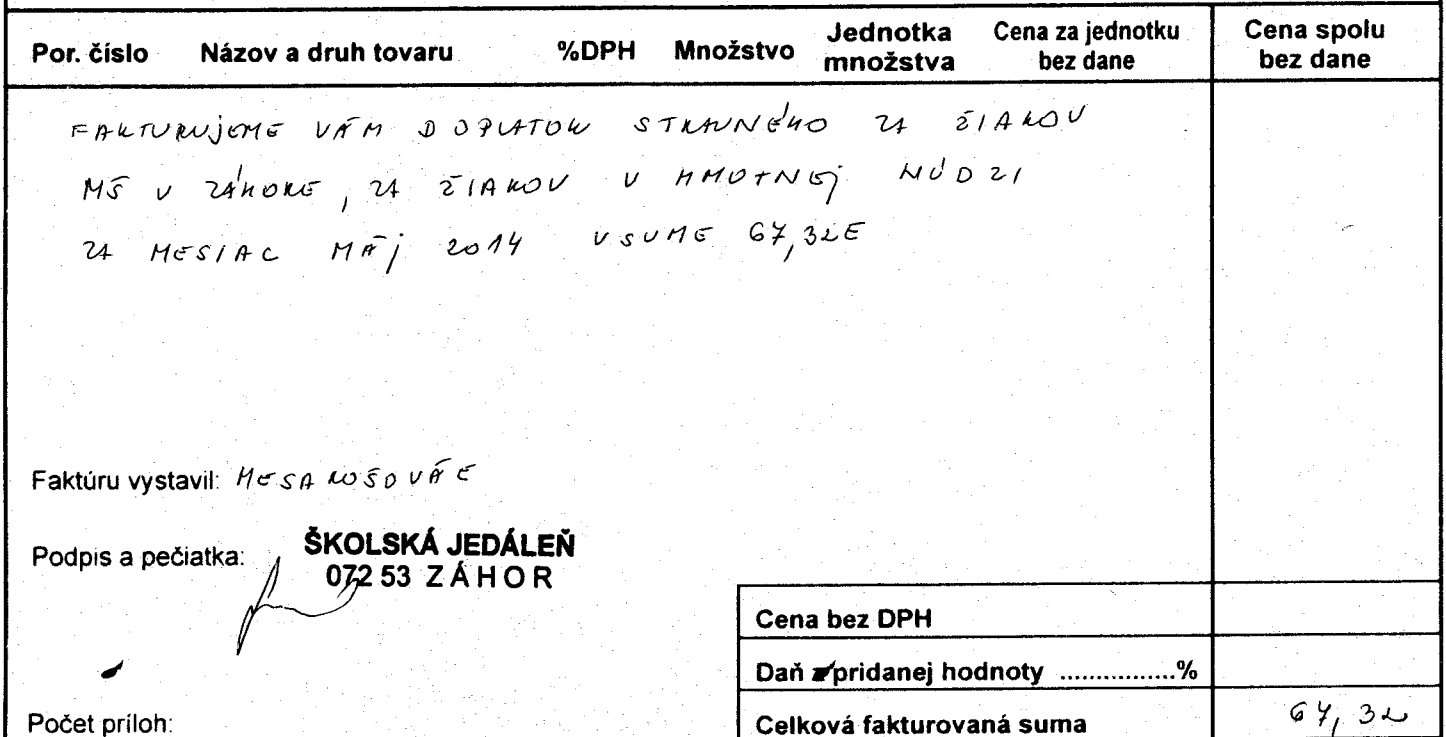 Por. číslo Názov a druh tovaru %DPH Množstvo Jednotka množstva Cena za jednotku bez dane Cena spolu bez dane
FAKTURUJEME VÁM DOPLATOK STRAVNÉHO ZA ŽIAKOV
MŠ V ZÁHORE, ZA ŽIAKOV V HMOTNEJ NÚDZI
ZA MESIAC MÁJ 2014 V SUME 67,32E
Faktúru vystavil: MESAROŠOVÁ E
Podpis a pečiatka:
ŠKOLSKÁ JEDÁLEŇ
072 53 ZÁHOR
Cena bez DPH
Daň z pridanej hodnoty ................%
Počet príloh:
Celková fakturovaná suma 67,32